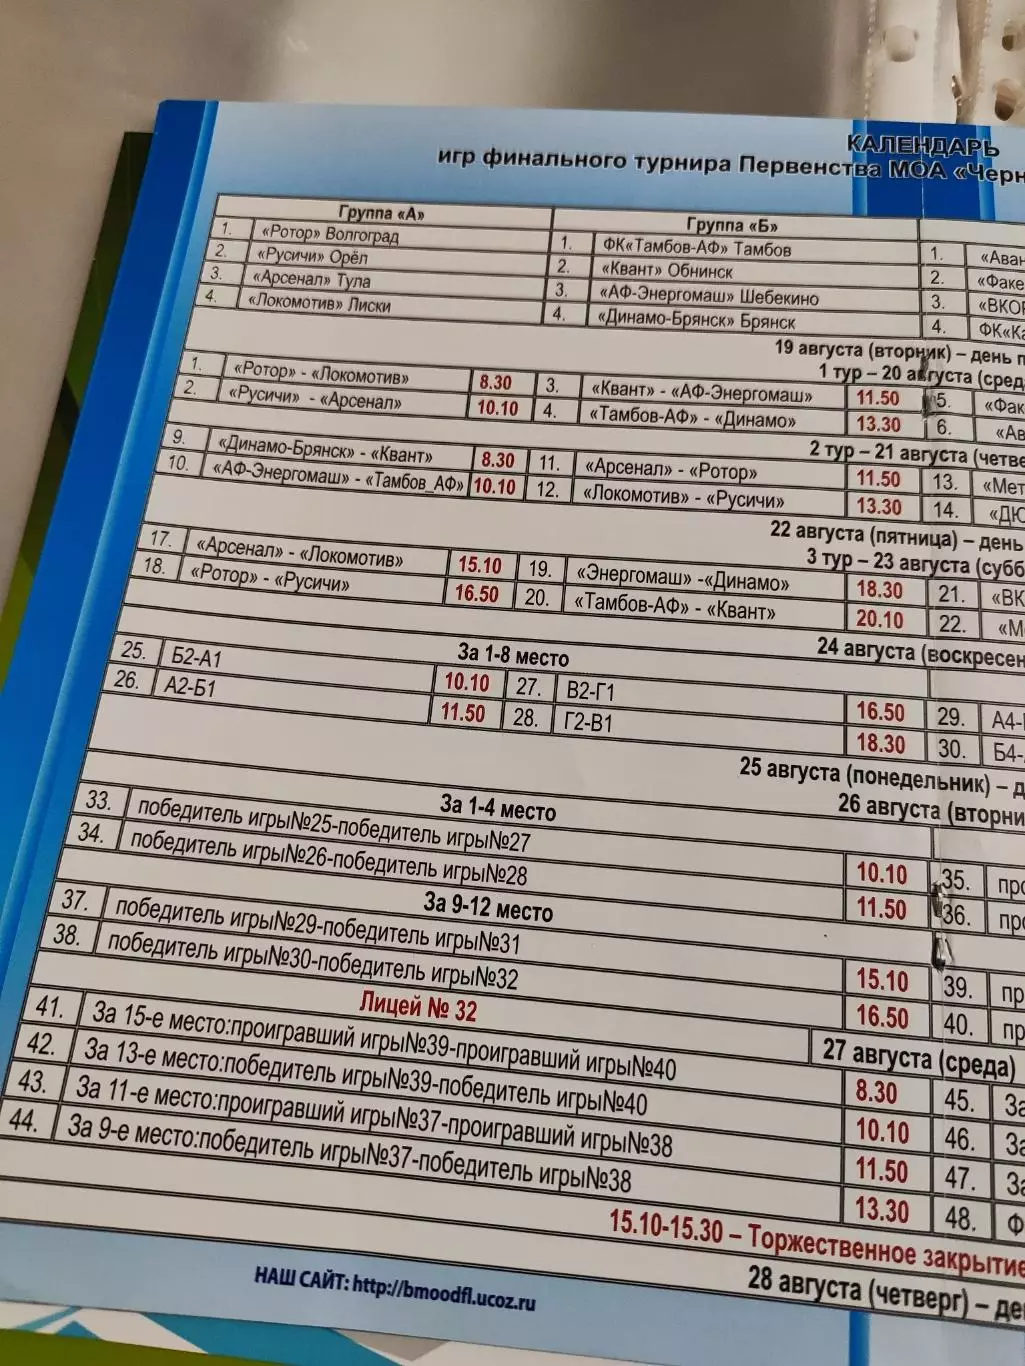 КАЛЕНДАРЬ
игр финального турнира Первенства МОА
Группа «А» Группа «Б»
1. «Ротор» Волгоград 1. ФК«Тамбов-АФ» Тамбов 1.
2. «Русичи» Орёл 2. «Квант» Обнинск 2.
3. «Арсенал» Тула 3. «АФ-Энергомаш» Шебекино 3.
4. «Локомотив» Лиски 4. «Динамо-Брянск» Брянск 4.
19 августа (вторник) – день
1 тур – 20 августа
1. «Ротор» - «Локомотив» 8.30 3. «Квант» - «АФ-Энергомаш» 11.50 5.
2. «Русичи» - «Арсенал» 10.10 4. «Тамбов-АФ» - «Динамо» 13.30 6.
2 тур – 21 августа
9. «Динамо-Брянск» - «Квант» 8.30 11. «Арсенал» - «Ротор» 11.50 13.
10. «АФ-Энергомаш» - «Тамбов_АФ» 10.10 12. «Локомотив» - «Русичи» 13.30 14.
22 августа (пятница) – день
3 тур – 23 августа
17. «Арсенал» - «Локомотив» 15.10 19. «Энергомаш» -«Динамо» 18.30 21.
18. «Ротор» - «Русичи» 16.50 20. «Тамбов-АФ» - «Квант» 20.10 22.
24 августа
За 1-8 место
25. Б2-А1 10.10 27. В2-Г1 16.50 29.
26. А2-Б1 11.50 28. Г2-В1 18.30 30.
25 августа (понедельник) –
26 августа
За 1-4 место
33. победитель игры№25-победитель игры№27 10.10 35.
34. победитель игры№26-победитель игры№28 11.50 36.
За 9-12 место
37. победитель игры№29-победитель игры№31 15.10 39.
38. победитель игры№30-победитель игры№32 16.50 40.
Лицей № 32 27 августа (среда)
41. За 15-е место:проигравший игры№39-проигравший игры№40 8.30 45. За
42. За 13-е место:победитель игры№39-победитель игры№40 10.10 46. За
43. За 11-е место:проигравший игры№37-проигравший игры№38 11.50 47. За
44. За 9-е место:победитель игры№37-победитель игры№38 13.30 48.
15.10-15.30 – Торжественное закрытие
28 августа (четверг) –
НАШ САЙТ: http://bmoodfl.ucoz.ru